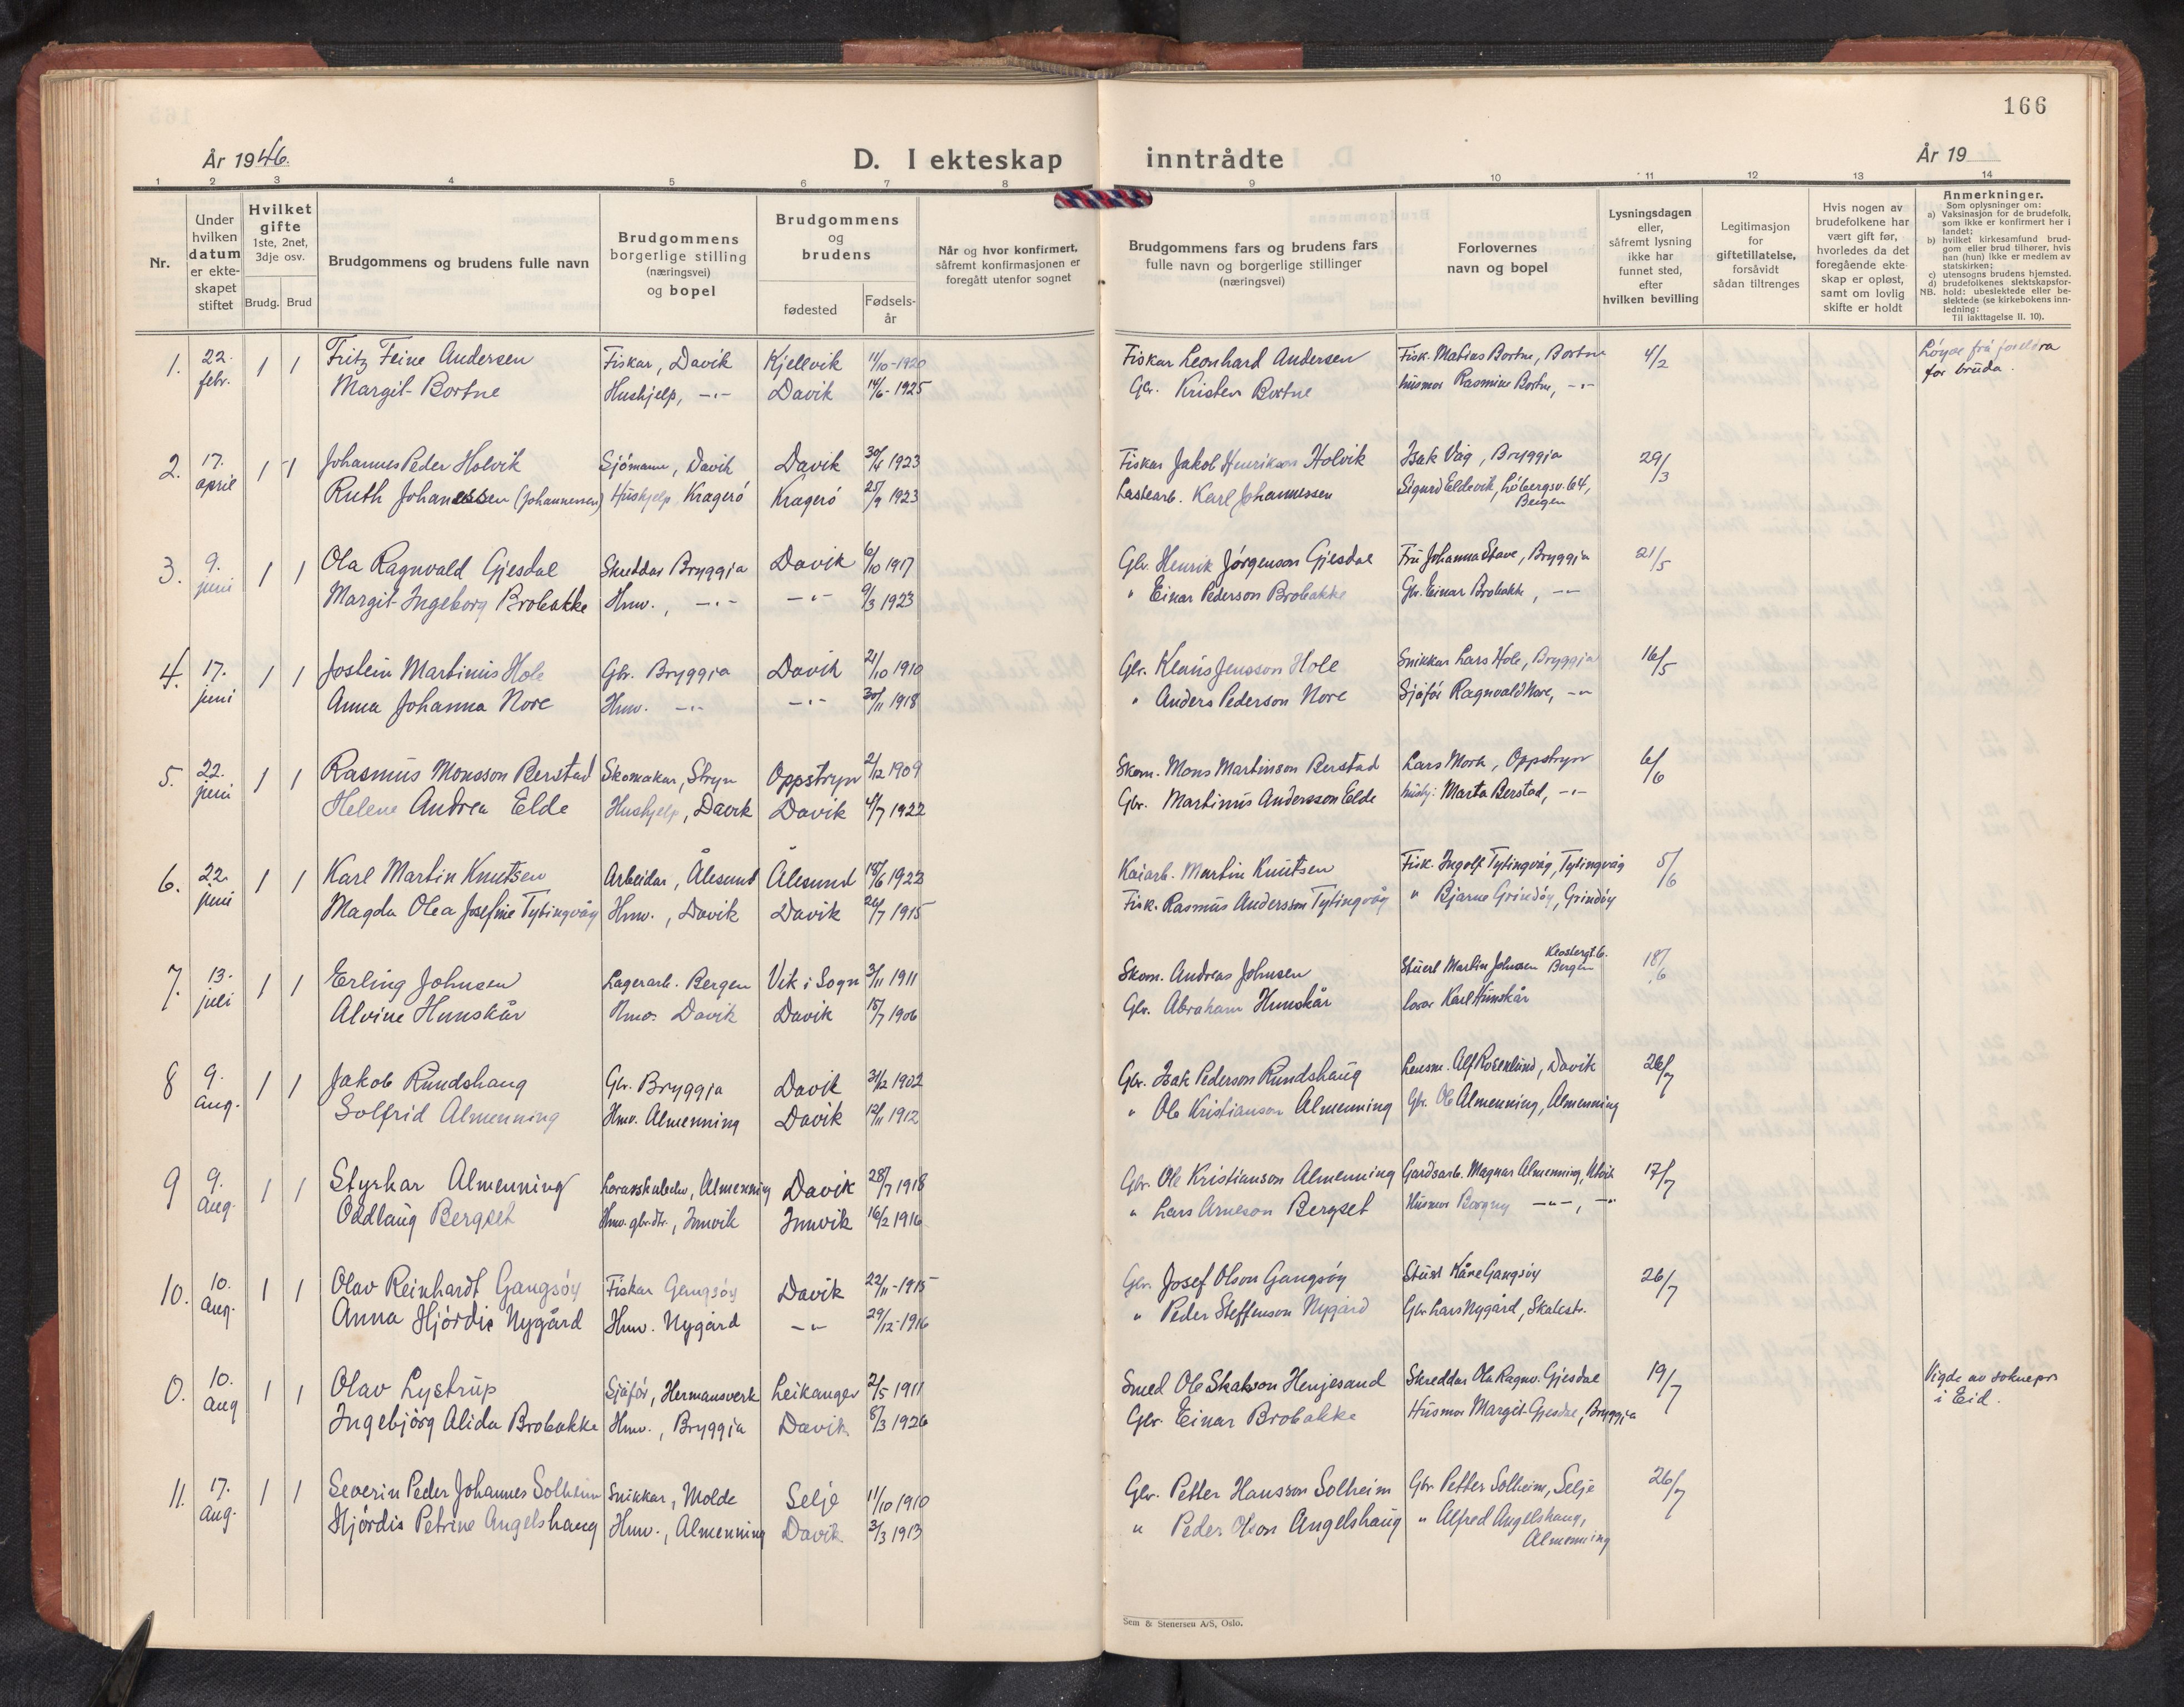 166
År 1946.
D. I ekteskap inntrådte
År 19
1 2 3 4 5 6 7 8 9 10 11 12 13 14
Nr.
Under hvilken datum er ekteskapet stiftet
Hvilket gifte 1ste, 2net, 3dje osv.
Brudg. Brud
Brudgommens og brudens fulle navn
Brudgommens borgerlige stilling (næringsvei) og bopel
Brudgommens og brudens
fødested
Fødselsår
Når og hvor konfirmert, såfremt konfirmasjonen er foregått utenfor sognet
Brudgommens fars og brudens fars fulle navn og borgerlige stillinger (næringsvei)
Forlovernes navn og bopel
Lysningsdagen eller, såfremt lysning ikke har funnet sted, efter hvilken bevilling
Legitimasjon for giftetillatelse, forsåvidt sådan tiltrenges
Hvis nogen av brudefolkene har vært gift før, hvorledes da det foregående ekteskap er opløst, samt om lovlig skifte er holdt
Anmerkninger.
Som oplysninger om:
a) Vaksinasjon for de brudefolk, som ikke er konfirmert her i landet;
b) hvilket kirkesamfund brudgom eller brud tilhører, hvis han (hun) ikke er medlem av statskirken;
c) utensogns brudens hjemsted.
d) brudefolkenes slektskapsforhold: ubeslektede eller beslektede (se kirkebokens innledning:
NB.
Til iakttagelse II. 10).
1. 22. febr. 1 1 Fritz Feine Andersen Fiskar, Davik Kjellvik 11/10-1920 Fiskar Leonhard Andersen Fisk. Matias Bortne, Bortne 4/2 Löyve frå foreldra for bruda.
Margit Bortne Hushjelp, -"- Davik 14/6-1925 Gbr. Kristen Bortne husmor Rasmine Bortne, -"-
2. 17. april 1 1 Johannes Peder Holvik Sjömann, Davik Davik 30/4 1923 Fiskar Jakob Henrikson Holvik Isak Våg, Bryggja 29/3
Ruth Johanessen (Johannessen) Hushjelp Kragerö Kragerö 25/9 1923 Lastearb. Karl Johannessen Sigurd Eldevik, Löbergsv. 64, Bergen
3. 9. juni 1 1 Ola Ragnvald Gjesdal Skreddar Bryggja Davik 6/10 1917 Gbr. Henrik Jörgenson Gjesdal Fru Johanna Stave, Bryggja 21/5
Margit Ingeborg Brobakke Hmv., -"- -"- 9/3 1923 " Einar Pederson Brobakke Gbr. Einar Brobakke, -"-
4. 17. juni 1 1 Jostein Martinus Hole Gbr. Bryggja Davik 21/10 1910 Gbr. Klaus Jensson Hole Snikkar Lars Hole, Bryggja 16/5
Anna Johanna Nore Hmv. -"- -"- 30/11 1918 " Anders Pederson Nore Sjåför Ragnvald Nore, -"-
5. 22. juni 1 1 Rasmus Monsson Berstad Skomakar, Stryn Oppstryn 2/12 1909 Skom. Mons Martinson Berstad Lars Mork, Oppstryn 6/6
Helene Andrea Elde Hushjelp, Davik Davik 4/7 1922 Gbr. Martinus Andersson Elde hushj. Marta Berstad, -"-
6. 22. juni 1 1 Karl Martin Knutsen Arbeidar, Ålesund Ålesund 18/6 1922 Kaiarb. Martin Knutsen Fisk. Ingolf Tytingvåg, Tytingvåg 5/6
Magda Olea Josefine Tytingvåg Hmv., Davik Davik 26/7 1915 Fisk. Rasmus Andersson Tytingvåg " Bjarne Grindöy, Grindöy
7. 13. juli 1 1 Erling Johnsen Lagerarb. Bergen Vik i Sogn 3/11 1911 Skom. Andreas Johnsen Stuert Martin Johnsen Klostergt. 6. Bergen 18/6
Alvine Hunskår Hmv. Davik Davik 15/7 1906 Gbr. Abraham Hunskår Karl Hunskår
8 9. aug. 1 1 Jakob Rundshaug Gbr. Bryggja Davik 31/2 1902 Gbr. Isak Pederson Rundshaug Lensm. Alf Rosenlund, Davik 26/7
Solfrid Almenning Hmv. Almenning Davik 12/11 1912 " Ole Kristianson Almenning Gbr. Ole Almenning, Almenning
9 9. aug. 1 1 Styrkar Almenning Almenning Davik 28/7 1918 Gbr. Ole Kristianson Almenning Gardsarb. Magnar Almenning, 17/7
Oddlaug Bergset Hmv. gbr.dtr., Innvik Innvik 16/2 1916 " Lars Arneson Bergset Husmor Borgny -"-, -"-
10. 10. aug. 1 1 Olav Reinhardt Gangsöy Fiskar Gangsöy Davik 22/11-1915 Gbr. Josef Olson Gangsöy Stuert Kåre Gangsöy 26/7
Anna Hjördis Nygård Hmv. Nygård -"- 29/12-1916 " Peder Steffenson Nygård Gbr. Lars Nygård, Skatestr.
0. 10. aug 1 1 Olav Lystrup Sjåför, Hermansverk Leikanger 2/5 1911 Smed Ole Henjesand Skreddar Ola Ragnv. Gjesdal 19/7 Vigde av soknepr i Eid.
Ingebjörg Alida Brobakke Hmv., Bryggja Davik 8/3 1926 Gbr. Einar Brobakke Husmor Margit Gjesdal, Bryggja
11. 17. aug. 1 1 Severin Peder Johannes Solheim Snikkar, Molde Selje 11/10 1910 Gbr. Petter Hansson Solheim Gbr Petter Solheim, Selje 26/7
Hjördis Petrine Angelshaug Hmv., Almenning Davik 3/3 1913 " Peder Olson Angelshaug " Alfred Angelshaug, Almenning
Sem & Stenersen A/S, Oslo.